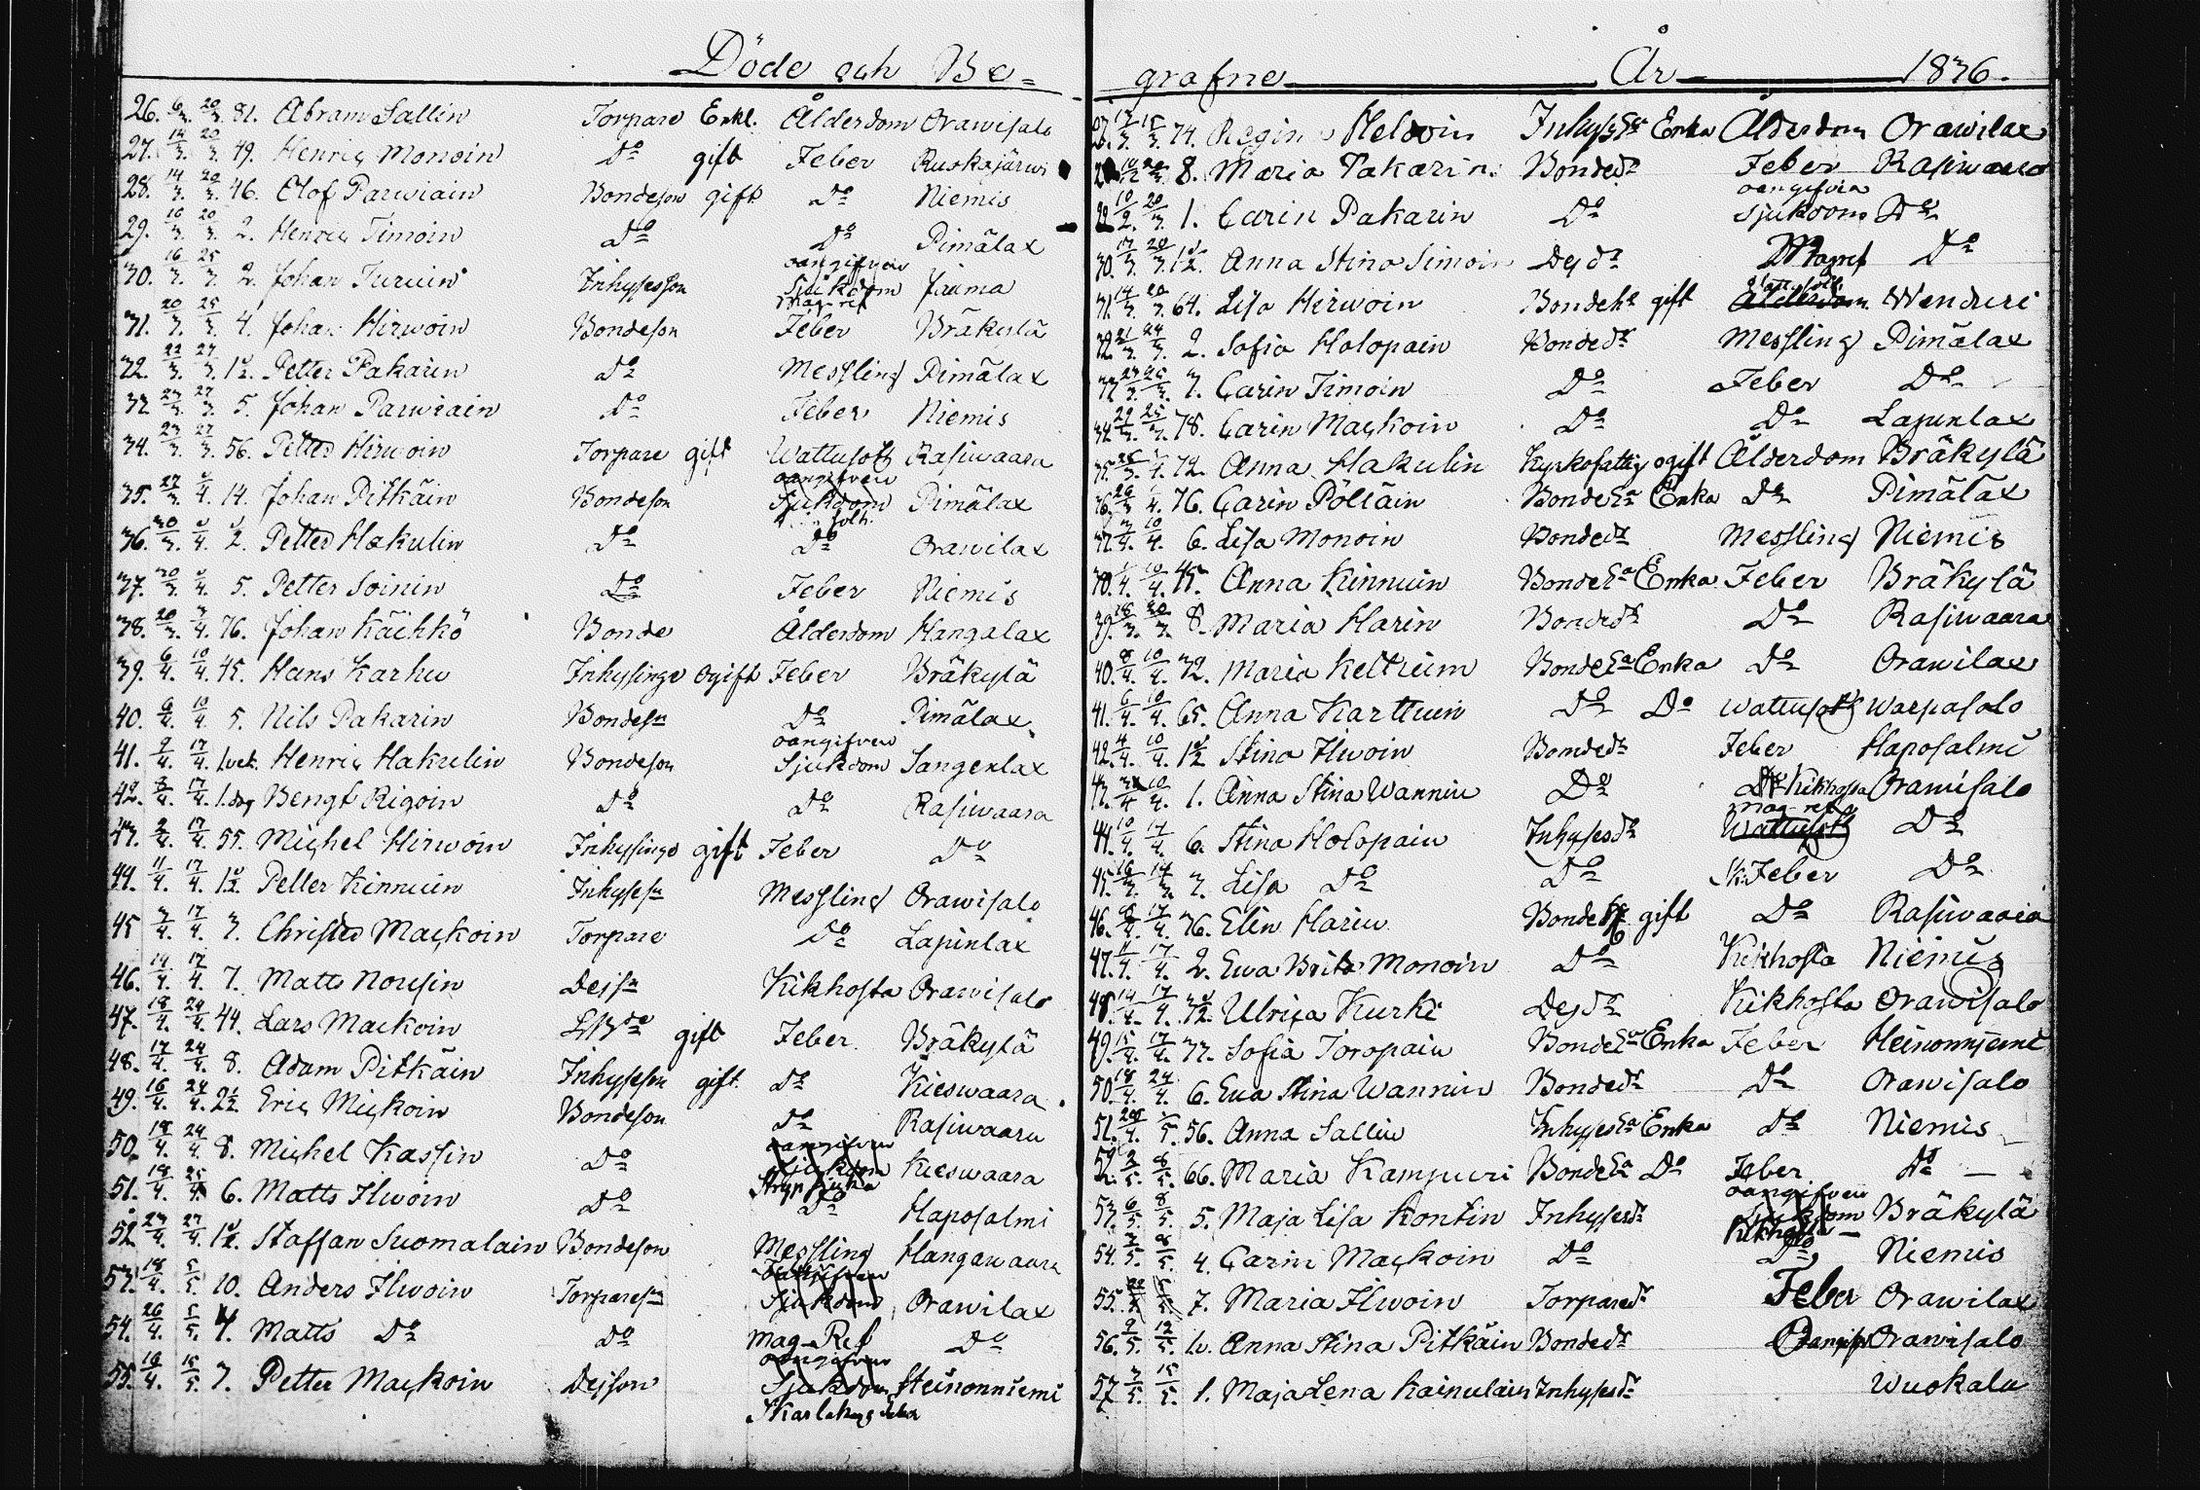 Döde och Be=
26. 6/3. 20/3. 81. Abram Sallin Torpare Enkl. Ålderdom Orawisalo
27. 14/3. 20/3. 49. Henric Monoin Do gift Feber Ruokojärwi
28. 14/3. 20/3. 46. Olof Parwiain Bondeson gift Do Niemis
29. 16/3. 20/3. 2. Henric Timoin Do Do Pimälax
30. 16/3. 25/3. 2. Johan Turuin Inhysesson oangifven Sjukdom mag-ref Jaama
31. 20/3. 25/3. 4. Johan Hirwoin Bondeson Feber Bräkylä
32. 22/3. 27/3. 1/2. Petter Pakarin Do Messling Pimälax
33. 23/3. 27/3. 5. Johan Parwiain Do Feber Niemis
34. 23/3. 27/3. 56. Petter Hirwoin Torpare gift Wattusott Rasiwaara
35. 27/3. /4. 14. Johan Pitkäin Bondeson oangifven Sjukdom Pimälax
36. 30/3. /4. 2. Petter Hakulin Do Do Orawilax
37. 30/3. /4. 5. Petter Soinin Do Feber Niemis
38. 20/3. 3/4. 76. Johan Kächkö Bonde Ålderdom Hangalax
39. 6/4. 10/4. 45. Hans Karhu Inhysinge ogift Feber Bräkylä
40. 6/4. 10/4. 5. Nils Pakarin Bondesn Do Pimälax
41. 9/4. 17/4. 1 vek. Henric Hakulin Bondeson oangifven Sjukdom Sangenlax
42. 3/4. 17/4. 1. dag Bengt Rigoin Do Do Rasiwaara
43. 9/4. 17/4. 55. Michel Hirwoin Inhysinge gift Feber Do
44. 11/4. 17/4. 1/2. Petter Kinnuin Inhysesn Messling Orawisalo
45. 3/4. 17/4. 3. Christer Mackoin Torpare Do Lapinlax
46. 14/4. 17/4. 7. Matts Nousin Dejsn Kikhosta Orawisalo
47. 18/4. 24/4. 44. Lars Mackoin gift Feber Bräkylä
48. 17/4. 24/4. 8. Adam Pitkäin Inhyseson gift Do Kieswaara
49. 16/4. 24/4. 2 1/2 Eric Mickoin Bondeson Do Rasiwaara
50. 18/4. 24/4. 8. Michel Kassin Do oangifven Sjukdom Strypsjuka Kieswaara
51. 18/4. 25/4. 6. Matts Ilwoin Do Do Haposalmi
52. 23/4. 27/4. 1/2. Staffan Suomalain Bondeson Messling Hangawaara
53. 18/4. 5/5. 10. Anders Ilwoin Torparesn oangifven Sjukdom Orawilax
54. 26/4. 5/5. 4. Matts Do Do mag-Ref Do
55. 16/4. 15/5. 7. Petter Mackoin Dejson oangifven Sjukdom Skarlakans feber Heinonniemi
grafne År 1836.
74. Regina Heldoin Inhyses Enka Ålderdom Orawilax
8. Maria Pakarin Bondedr Feber Rasiwaara
10/2. 20/3. 1. Carin Pakarin Do oangifven sjukdom Do
30. 17/3. 20/3. 1/2. Anna Stina Simoin Dejdr Magref Do
31. 14/3. 20/3. 64. Lisa Hirwoin Bondeh gift Ålderdom Wenduri
32. 21/3. 24/3. 2. Sofia Holopain Bondedr Messling Pimälax
33. 23/3. 25/3. 3. Carin Timoin Do Feber Do
34. 22/3. 25/3. 78. Carin Mackoin Do Do Lapinlax
35. 72. Anna Hakulin Kyrkofattig ogift Ålderdom Bräkylä
36. 76. Carin Pölläin Bonde Enka Do Pimälax
37. 10/4. 6. Lisa Monoin Bondedr Messling Niemis
38. 10/4. 45. Anna Kinnuin Bonde Enka Feber Bräkylä
39. 18/3. 20/3. 8. Maria Harin Bondedr Do Rasiwaara
40. 8/4. 10/4. 32. Maria Keltuin Bonde Enka Do Orawilax
41. 6/4. 10/4. 65. Anna Karttuin Do Do Wattusott Warpasalo
42. 4/4. 10/4. 1/2 Stina Ilwoin Bondedr Feber Haposalmi
43. 10/4. 1. Anna Stina Wannin Do Kikhosta Orawisalo
44. 10/4. 17/4. 6. Stina Holopain Inhysesdr mag-ref Wattusott Do
45. 16/3. 17/3. 3. Lisa Do Do Feber Do
46. 17/4. 36. Elin Harin Bonde gift Do Rasiwaara
47. 11/4. 17/4. 2. Ewa Brita Monoin Do Kikhosta Niemis
48. 14/4. 17/4. Ulrica Kurki Dejdr Kikhosta Orawisalo
49. 15/4. 17/4. 77. Sofia Toropain Bonde Enka Feber Heinonniemi
50. 18/4. 24/4. 6. Ewa Stina Wannin Bondedr Do Orawisalo
51. 56. Anna Sallin Inhyses Enka Do Niemis
52. 66. Maria Kampuri Bonde Do Feber Do
53. 6/5. 8/5. 5. Maja Lisa Kontin Inhysesdr oangifven Sjukdom Kikhosta Bräkylä
54. 3/5. 8/5. 4. Carin Mackoin Do Do Niemis
55. 7. Maria Ilwoin Torparedr Feber Orawilax
56. 9/5. 12/5. Anna Stina Pitkäin Bondedr Oangifv Orawisalo
57. 7/5. 15/5. 1. Maja Lena Kainulain Inhysesdr Wuokala